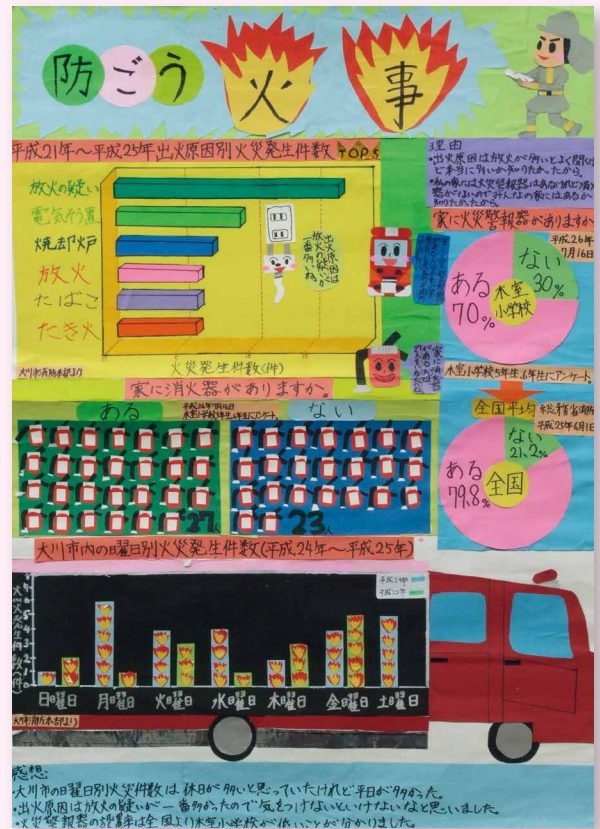 防ごう火事
平成21年～平成25年出火原因別火災発生件数 TOP5
放火の疑い
電気そう置
焼却炉
放火
たばこ
たき火
出火原因は
放火の疑いが
一番多いね。
火災発生件数(件)
大川市消防本部より
理由
・出火原因は放火が多いとよく聞くけ
ど本当に多いか知りたかったから。
・私の家には火災警報器はあるけれど消火
器がないのでみんなの家にはあるか
知りたかったから。
家に火災警報器がありますか
平成26年
7月16日
ある
70%
ない
30%
木室
小学校
木室小学校5年生、6年生にアンケート。
全国平均
総務省消防
平成25年6月1日
ない
21.2%
ある
79.8%
全国
家に消火器がありますか。
ある
平成26年7月16日
木室小学校5年生、6年生にアンケート。
ない
27人
23人
大川市内の曜日別火災発生件数(平成24年～平成25年)
火災発生件数(件)
平成24年
平成25年
日曜日
月曜日
火曜日
水曜日
木曜日
金曜日
土曜日
大川市消防本部より
感想
・大川市の曜日別火災件数は休日が多いと思っていたけれど平日が多かった。
・出火原因は放火の疑いが一番多かったので気をつけないといけないなと思いました。
・火災警報器の設置率は全国より木室小学校が低いことが分かりました。